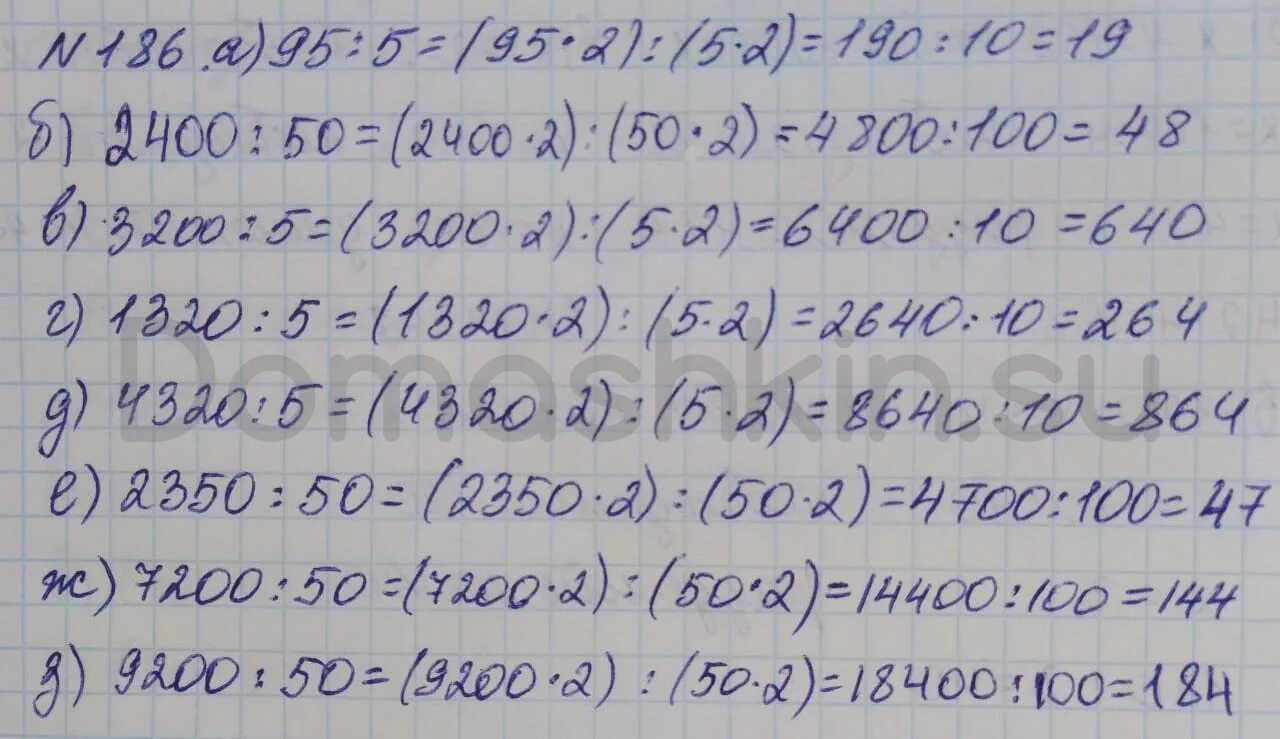 N186 а) 95:5=(95·2):(5·2)=190:10=19
б) 2400:50=(2400·2):(50·2)=4800:100=48
в) 3200:5=(3200·2):(5·2)=6400:10=640
г) 1320:5=(1320·2):(5·2)=2640:10=264
Domashkin.su
д) 4320:5=(4320·2):(5·2)=8640:10=864
е) 2350:50=(2350·2):(50·2)=4700:100=47
ж) 7200:50=(7200·2):(50·2)=14400:100=144
з) 9200:50=(9200·2):(50·2)=18400:100=184